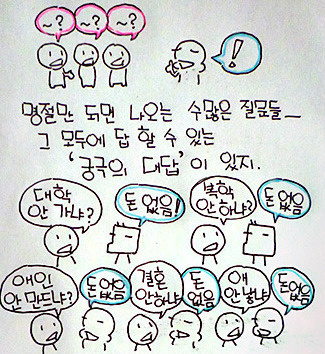 ~? ~? ~?
!
명절만 되면 나오는 수많은 질문들_
그 모두에 답 할 수 있는
'궁극의 대답'이 있지.
대학
안 가냐?
돈 없음!
복학
안 하냐?
돈 없음
애인
안 만드냐?
돈 없음
결혼
안하냐
돈
없음
애
안 낳냐?
돈없음